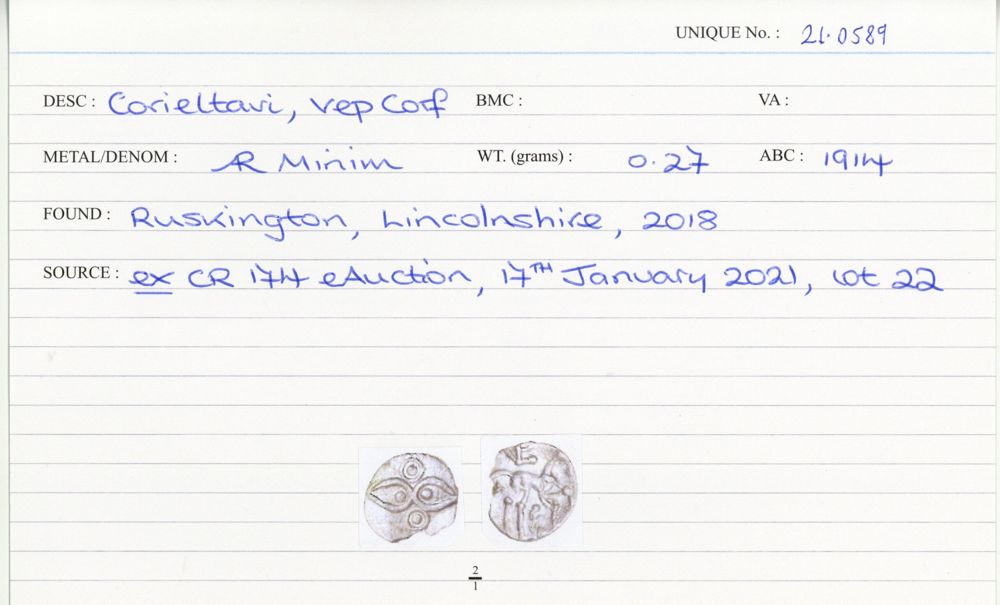 UNIQUE No. : 21.0589
DESC : Corieltavi, Vep Corf BMC : VA :
METAL/DENOM : AR Minim WT. (grams) : 0.27 ABC : 1914
FOUND : Ruskington, Lincolnshire, 2018
SOURCE : ex CR 174 eAuction, 17TH January 2021, lot 22
VE
2
1